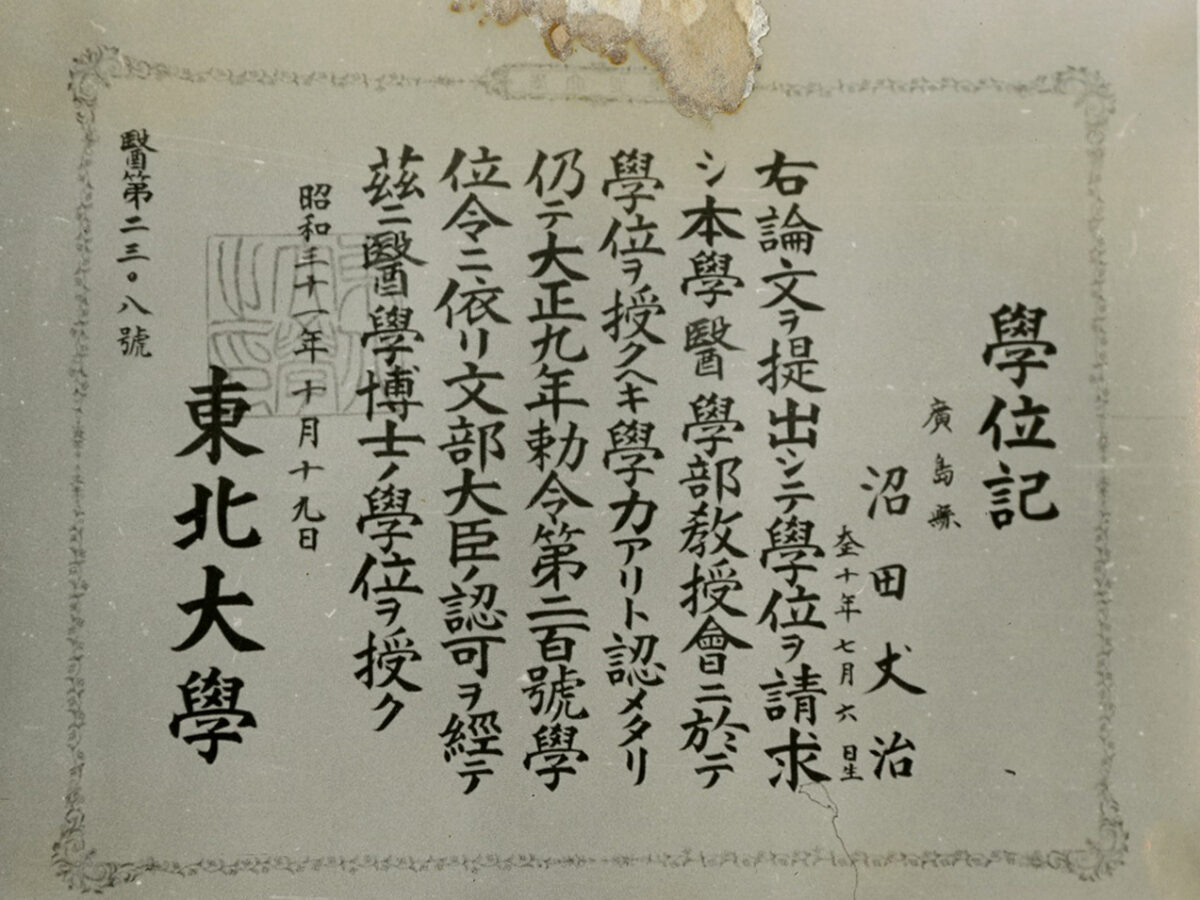 學位記
廣島縣
沼田丈治
大正十年七月六日生
右論文ヲ提出シテ學位ヲ請求
シ本學醫學部教授會ニ於テ
學位ヲ授クヘキ學力アリト認メタリ
仍テ大正九年勅令第二百號學
位令ニ依リ文部大臣ノ認可ヲ經テ
茲ニ醫學博士ノ學位ヲ授ク
昭和三十一年十月十九日
東北大學
醫第二三〇八號